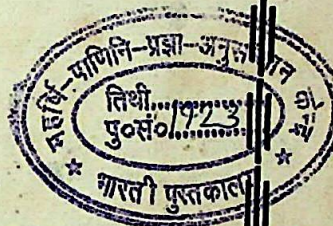 महर्षि-पाणिनि-प्रज्ञा-अनुसंधान
तिथी..............
पु०सं० 1923
भारती पुस्तकालय